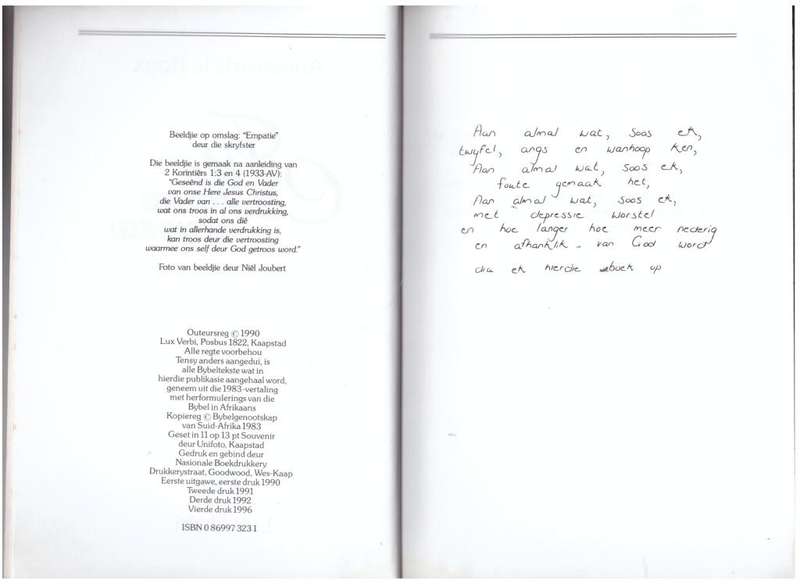 Beeldjie op omslag: "Empatie"
deur die skryfster
Die beeldjie is gemaak na aanleiding van
2 Korintiërs 1:3 en 4 (1933-AV):
"Geseënd is die God en Vader
van onse Here Jesus Christus,
die Vader van . . . alle vertroosting,
wat ons troos in al ons verdrukking,
sodat ons dié
wat in allerhande verdrukking is,
kan troos deur die vertroosting
waarmee ons self deur God getroos word."
Foto van beeldjie deur Niël Joubert
Outeursreg © 1990
Lux Verbi, Posbus 1822, Kaapstad
Alle regte voorbehou
Tensy anders aangedui, is
alle Bybeltekste wat in
hierdie publikasie aangehaal word,
geneem uit die 1983-vertaling
met herformulerings van die
Bybel in Afrikaans
Kopiereg © Bybelgenootskap
van Suid-Afrika 1983
Geset in 11 op 13 pt Souvenir
deur Unifoto, Kaapstad
Gedruk en gebind deur
Nasionale Boekdrukkery
Drukkerystraat, Goodwood, Wes-Kaap
Eerste uitgawe, eerste druk 1990
Tweede druk 1991
Derde druk 1992
Vierde druk 1996
ISBN 0 86997 323 1
Aan almal wat, soos ek,
twyfel, angs en wanhoop ken,
Aan almal wat, soos ek,
foute gemaak het,
Aan almal wat, soos ek,
met depressie worstel
en hoe langer hoe meer nederig
en afhanklik van God word
dra ek hierdie boek op